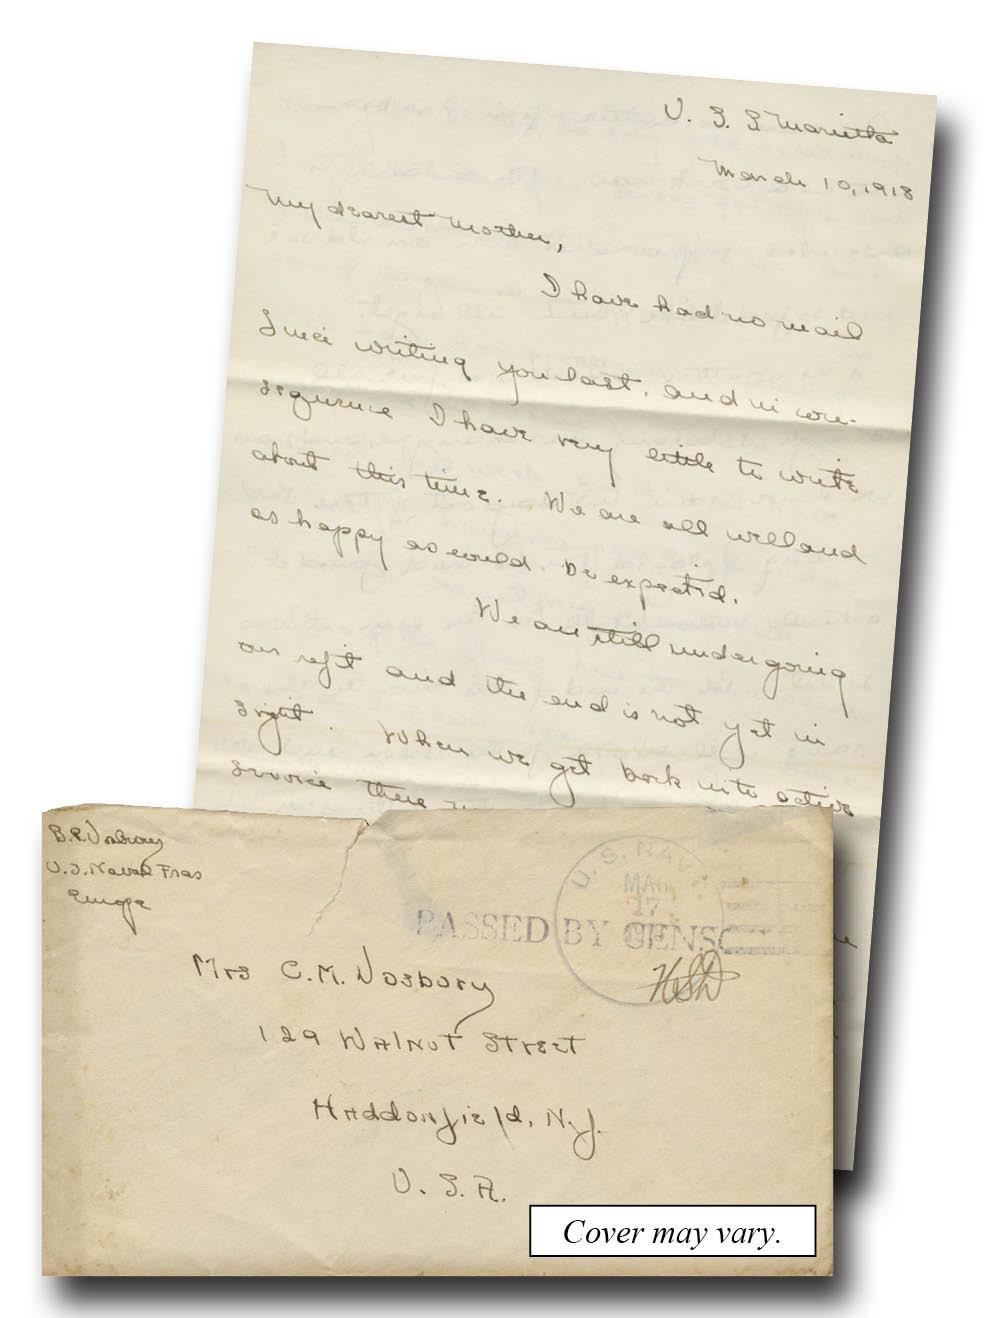 U. S. S Marietta
March 10, 1918
My dearest Mother,
I have had no mail
Since writing you last, and in con-
sequence I have very little to write
about this time. We are all well and
as happy as could be expected.
We are still undergoing
our refit and the end is not yet in
sight. When we get back into active
service there
U.S. Naval Forces
Europe
PASSED BY CENSO
U.S. NAV
MAR
17
Mrs C. M. Vosbury
129 Walnut Street
Haddonfield, N.J.
U. S. A.
Cover may vary.